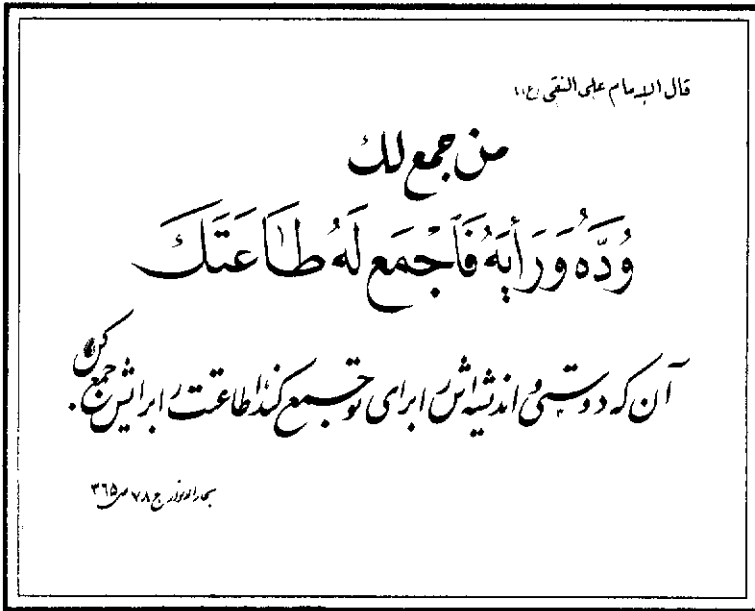 قال الامام علی النقی (ع):
من جمع لك
وُدَّهُ وَرَأیَهُ فَاَجْمَع لَهُ طَاعَتَكَ
آن که دوستی و اندیشه‌اش را برای تو جمع کند اطاعتت را برایش جمع کن.
بحارالانوار ج ۷۸ ص ۳۶۵